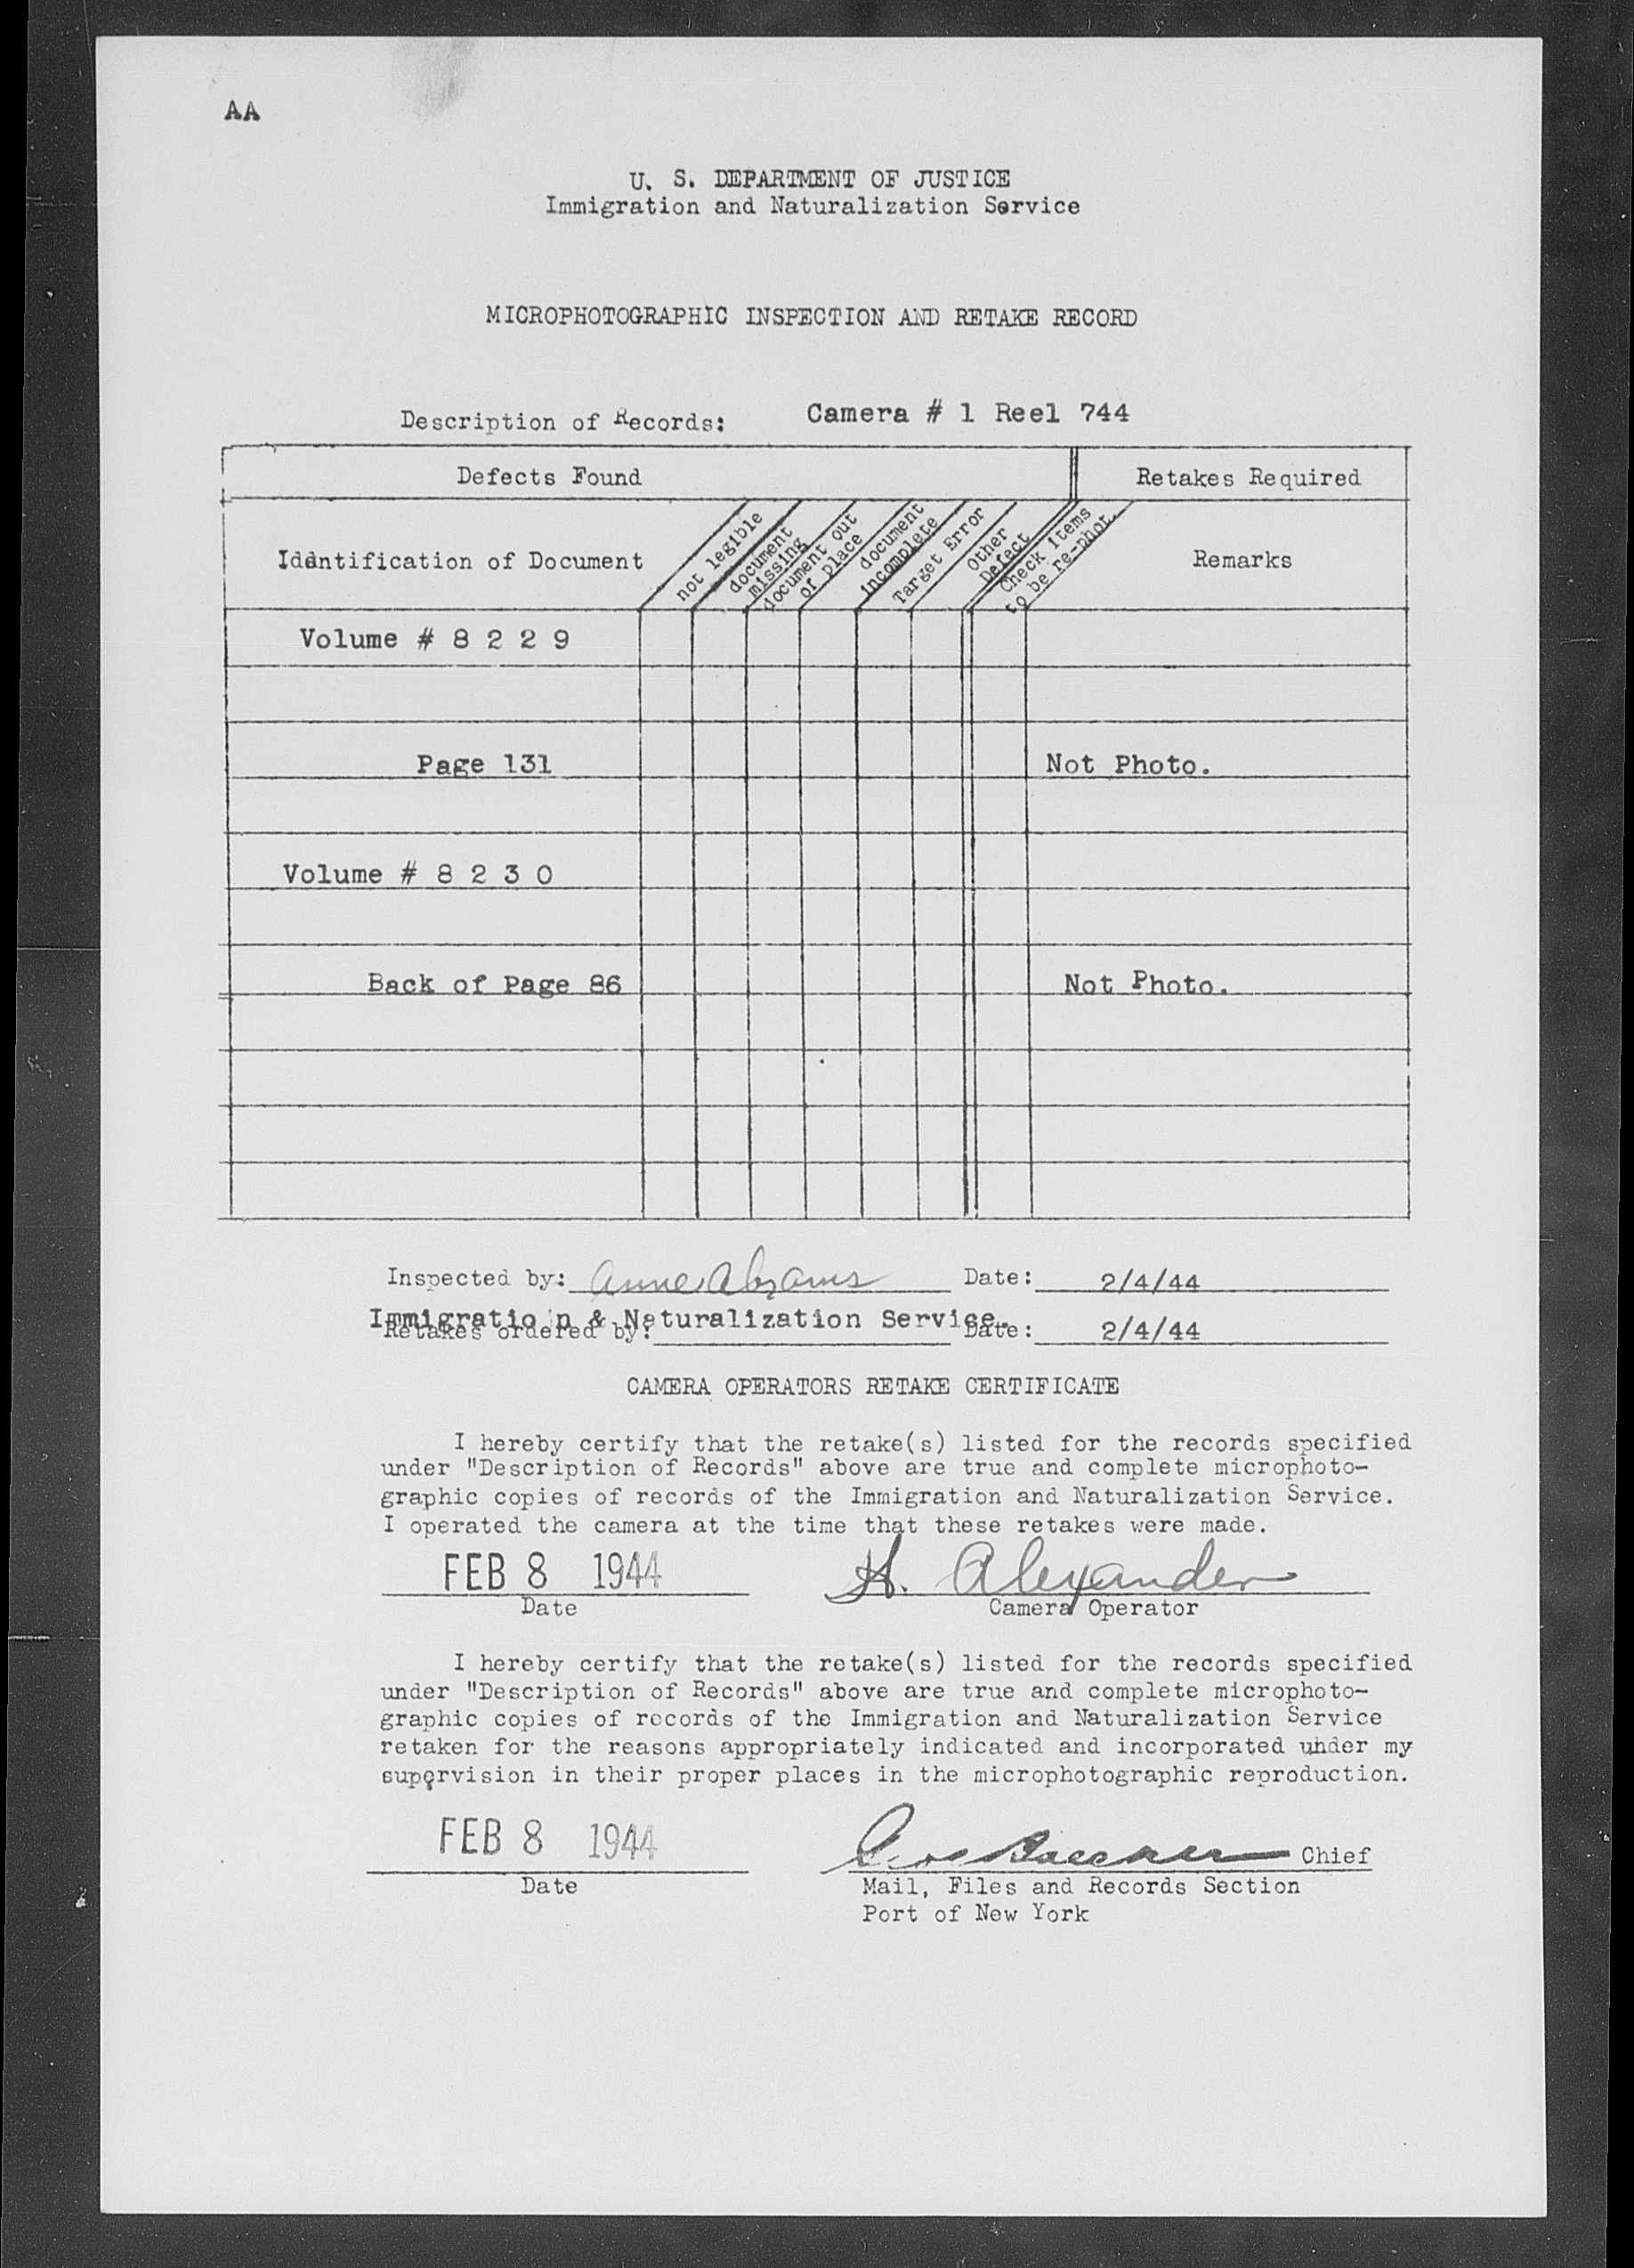 AA
U. S. DEPARTMENT OF JUSTICE
Immigration and Naturalization Service
MICROPHOTOGRAPHIC INSPECTION AND RETAKE RECORD
Description of Records: Camera # 1 Reel 744
Defects Found Retakes Required
Idantification of Document
not legible
document
missing
document out
of place
document
incomplete
Target Error
Other
Defect
Check items
to be re-phot.
Remarks
Volume # 8 2 2 9
Page 131 Not Photo.
Volume # 8 2 3 0
Back of Page 86 Not Photo.
Inspected by: Anne Abrams Date: 2/4/44
Immigration & Naturalization Service.
Retakes ordered by: Date: 2/4/44
CAMERA OPERATORS RETAKE CERTIFICATE
I hereby certify that the retake(s) listed for the records specified
under "Description of Records" above are true and complete microphoto-
graphic copies of records of the Immigration and Naturalization Service.
I operated the camera at the time that these retakes were made.
FEB 8 1944 H. Alexander
Date Camera Operator
I hereby certify that the retake(s) listed for the records specified
under "Description of Records" above are true and complete microphoto-
graphic copies of records of the Immigration and Naturalization Service
retaken for the reasons appropriately indicated and incorporated under my
supervision in their proper places in the microphotographic reproduction.
FEB 8 1944 Chief
Date Mail, Files and Records Section
Port of New York